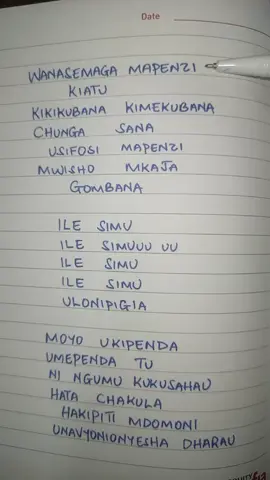 Date
WANASEMAGA MAPENZI
KIATU
KIKIKUBANA KIMEKUBANA
CHUNGA SANA
USIFOSI MAPENZI
MWISHO MKAJA
GOMBANA
ILE SIMU
ILE SIMUUU UU
ILE SIMU
ILE SIMU
ULONIPIGIA
MOYO UKIPENDA
UMEPENDA TU
NI NGUMU KUKUSAHAU
HATA CHAKULA
HAKIPITI MDOMONI
UNAVYONIONYESHA DHARAU